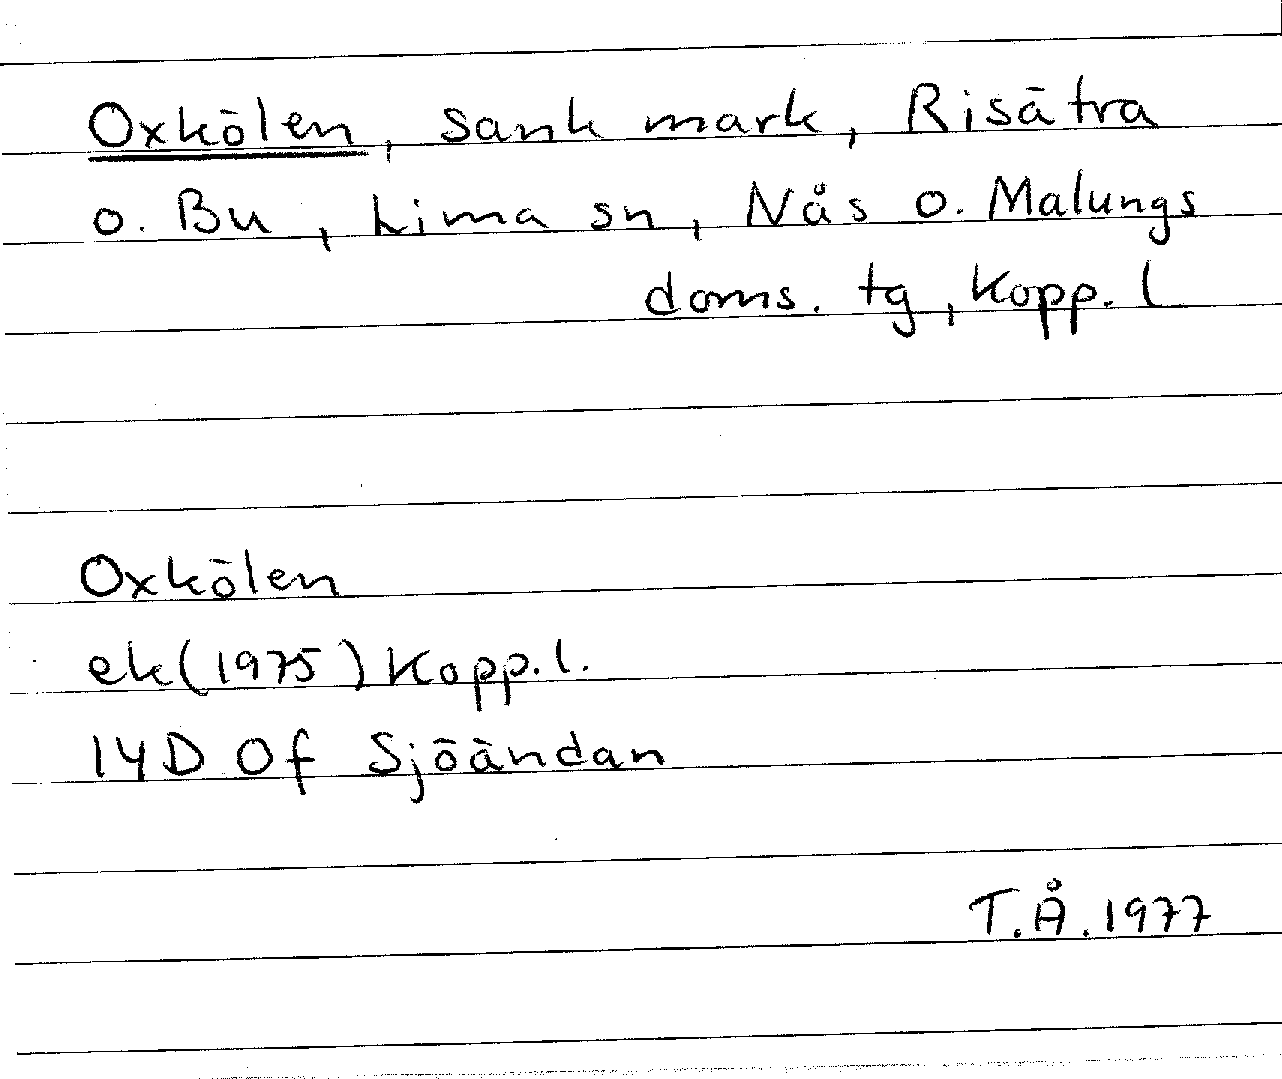 Oxkölen, sank mark, Risätra
o. Bu, Lima sn, Nås o. Malungs
doms. tg, Kopp. l
Oxkölen
ek (1975) Kopp. l.
14D 0f Sjöändan
T.Å. 1977